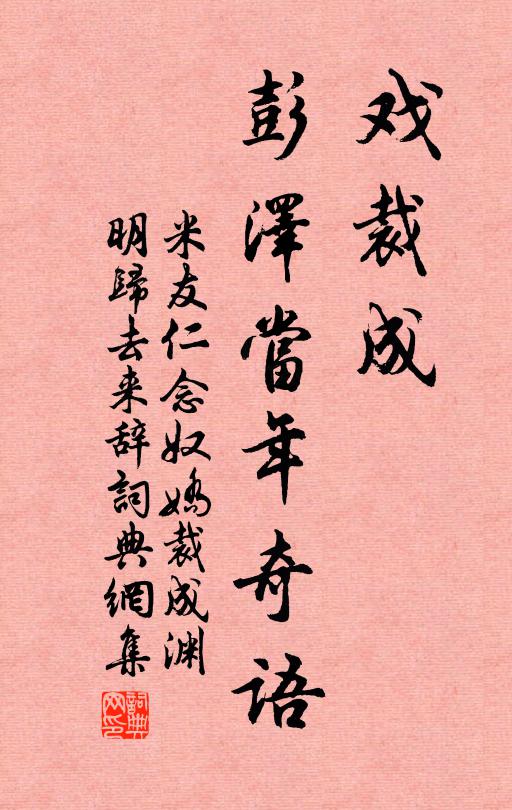 戏裁成
彭澤當年奇语
米友仁念奴嬌裁成渊
明歸去来辞詞典網集
詞典网印